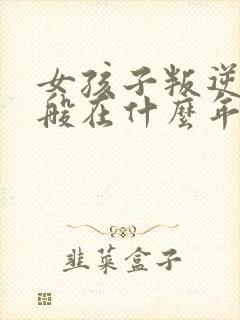 女孩子叛逆
般在什麼年
韭菜盒子